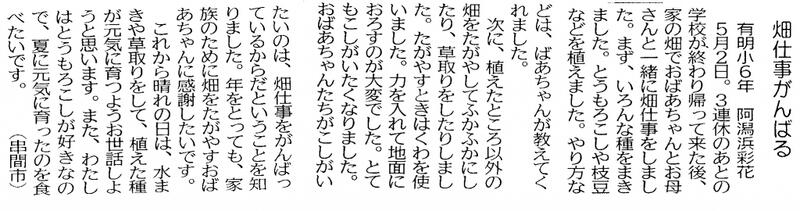 畑仕事がんばる
有明小6年　阿潟浜彩花
5月2日。3連休のあとの
学校が終わり帰って来た後、
家の畑でおばあちゃんとお母
さんと一緒に畑仕事をしまし
た。まず、いろんな種をまき
ました。とうもろこしや枝豆
などを植えました。やり方な
どは、ばあちゃんが教えてく
れました。
次に、植えたところ以外の
畑をたがやしてふかふかにし
たり、草取りをしたりしまし
た。たがやすときはくわを使
いました。力を入れて地面に
おろすのが大変でした。とて
もこしがいたくなりました。
おばあちゃんたちがこしがい
たいのは、畑仕事をがんばっ
ているからだということを知
りました。年をとっても、家
族のために畑をたがやすおば
あちゃんに感謝したいです。
これから晴れの日は、水ま
きや草取りをして、植えた種
が元気に育つようお世話しよ
うと思います。また、わたし
はとうもろこしが好きなの
で、夏に元気に育ったのを食
べたいです。　　（串間市）